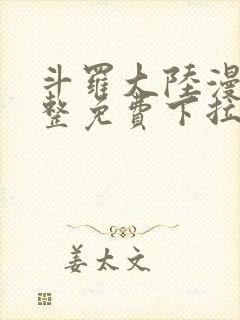 斗羅大陸漫
整免費下拉
姜太文